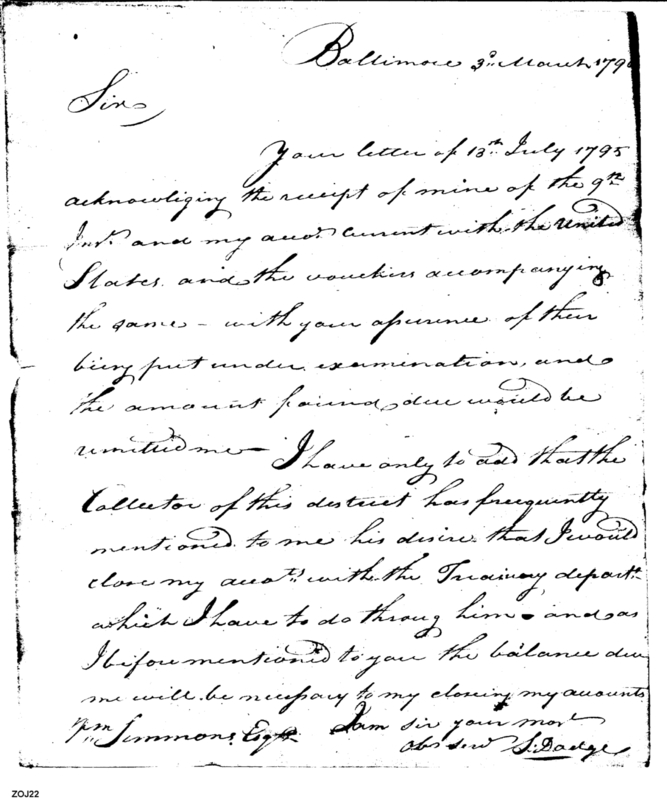 Baltimore 3d March 179
Sir
Your letter of 13th July 1795
acknowliging the receipt of mine of the 9th
Inst. and my accot. Current with the United
States and the vouchers accompanying
the same – with your assurence of their
being put under examination, and
the amount found due would be
remitted me – I have only to add that the
Collector of this district has freequently
mentioned to me his disire that I would
close my accots. with the Treasury departt.
which I have to do throug him and as
I before mentioned to you the balance due
me will be necessary to my closeing my accounts
Wm Simmons Esqr. I am sir your most
obt servt S: Dodge
ZOJ22